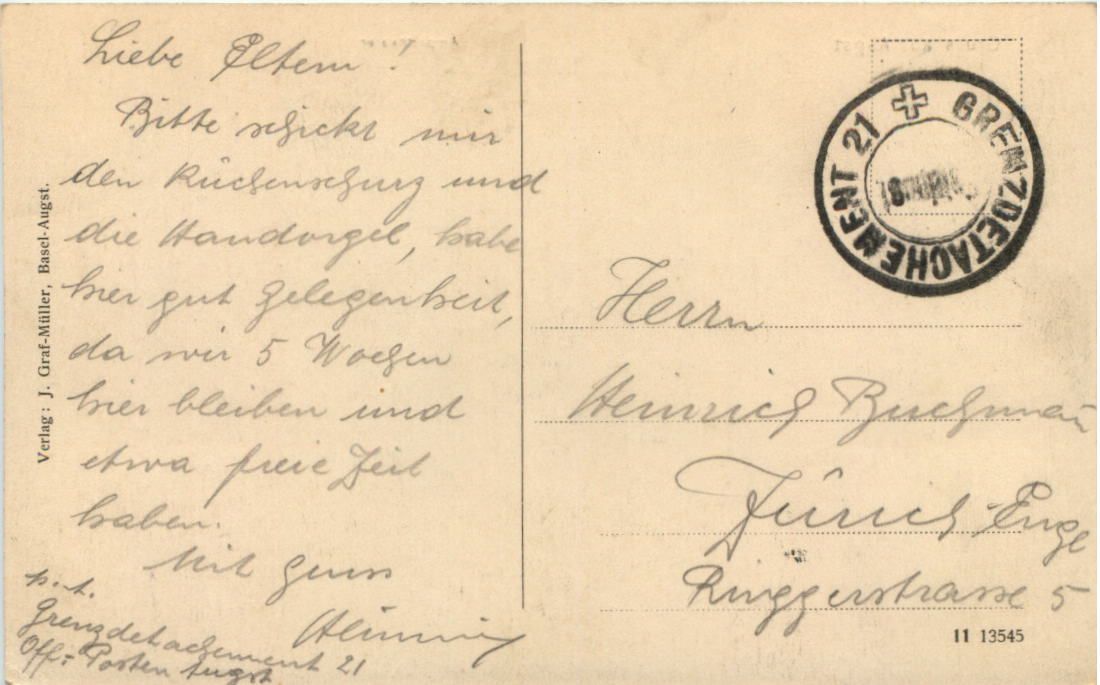 Liebe Eltern!
Bitte schickt mir
den Küchenschurz und
die Handorgel, habe
hier gut Gelegenheit,
da wir 5 Wochen
hier bleiben und
etwa freie Zeit
haben.
Mit Gruss
p. t.
Grenzdetachement 21
Off: Posten Augst
Verlag: J. Graf-Müller, Basel-Augst.
GRENZDETACHEMENT 21
Herrn
Heinrich
Zürich-Enge
Ringgerstrasse 5
11 13545